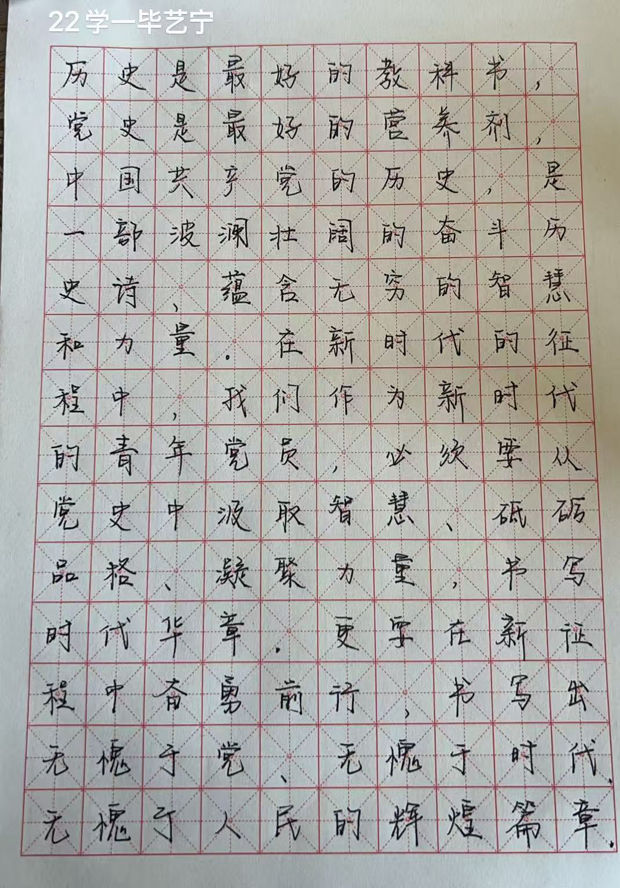 22学一毕艺宁
历史是最好的教科书，
党史是最好的营养剂，
中国共产党的历史，是
一部波澜壮阔的奋斗历
史诗，蕴含无穷的智慧
和力量．在新时代的征
程中，我们作为新时代
的青年党员，必须要从
党史中汲取智慧、砥砺
品格、凝聚力量，书写
时代华章．更要在新征
程中奋勇前行，书写出
无愧于党、无愧于时代．
无愧于人民的辉煌篇章．